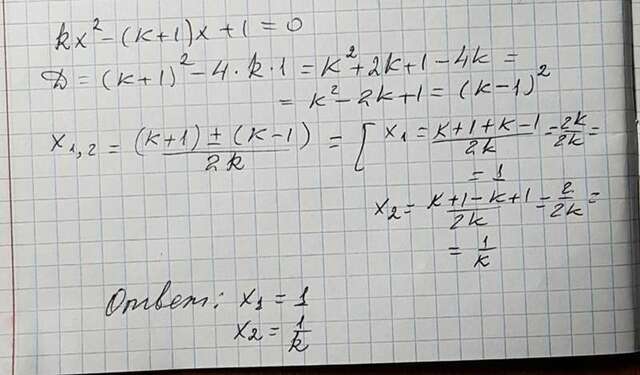 kx² - (k+1)x + 1 = 0
D = (k+1)² - 4·k·1 = k² + 2k + 1 - 4k =
= k² - 2k + 1 = (k-1)²
x₁,₂ = ((k+1) ± (k-1))/2k = [ x₁ = (k+1+k-1)/2k = 2k/2k =
= 1
x₂ = (k+1-k+1)/2k = 2/2k =
= 1/k
Ответ: x₁ = 1
x₂ = 1/k